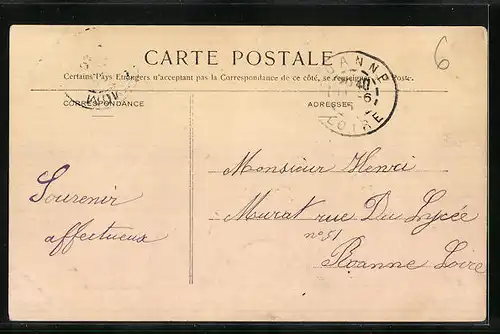 6
CARTE POSTALE
Certains Pays Etrangers n'acceptant pas la Correspondance de ce côté, se renseigner à la Poste.
CORRESPONDANCE
ADRESSE
ROANNE
LOIRE
Monsieur Henri
Souvenir
Murat rue Du Lycée
affectueux
n° 51
Roanne Loire